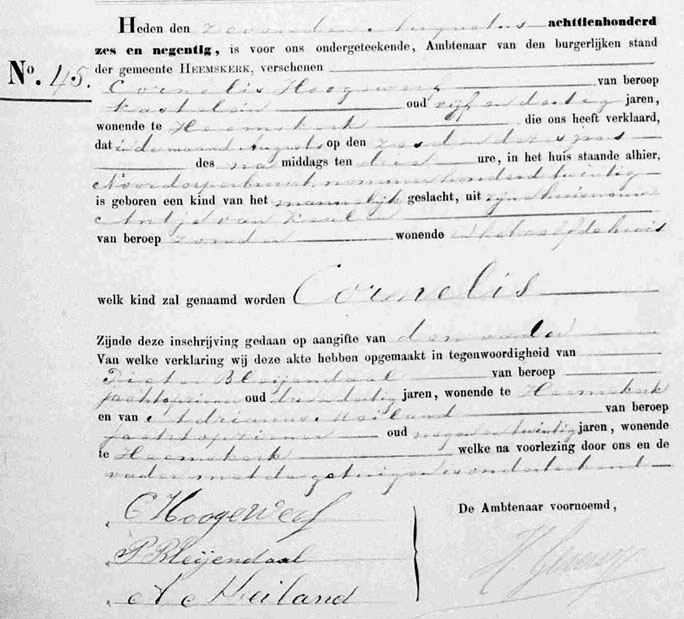 Heden den zevenden Augustus achttienhonderd
zes en negentig, is voor ons ondergeteekende, Ambtenaar van den burgerlijken stand
der gemeente HEEMSKERK, verschenen
No. 45.
Cornelis Hoogewerf van beroep
Kastelein oud vijf en dertig jaren,
wonende te Heemskerk die ons heeft verklaard,
dat in de maand Augustus op den zesden dezes jaars
des na middags ten drie ure, in het huis staande alhier,
Noorderbuurt nommer honderd twintig
is geboren een kind van het mannelijk geslacht, uit zijne huisvrouw
Antje van
van beroep zonder wonende
welk kind zal genaamd worden Cornelis
Zijnde deze inschrijving gedaan op aangifte van den vader
Van welke verklaring wij deze akte hebben opgemaakt in tegenwoordigheid van
Pieter Bleijendaal van beroep
oud dertig jaren, wonende te Heemskerk
en van Adrianus Meiland van beroep
oud negen en twintig jaren, wonende
te Heemskerk welke na voorlezing door ons en de
vader met de getuigen is onderteekend
C Hoogewerf
P. Bleijendaal
A Meiland
De Ambtenaar voornoemd,